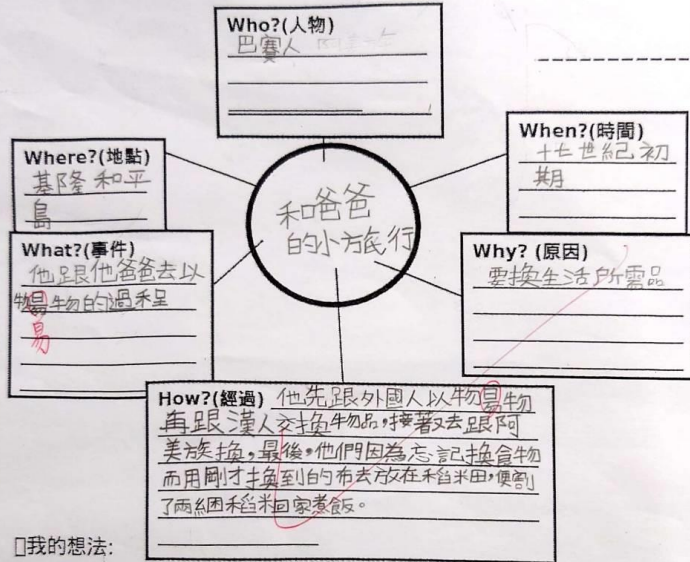 Who?(人物)
巴賽人
When?(時間)
十七世紀初
期
Where?(地點)
基隆和平
島
和爸爸
的小旅行
What?(事件)
他跟他爸爸去以
物易物的過程
易
Why? (原因)
要換生活所需品
How?(經過) 他先跟外國人以物易物
再跟漢人交換物品,接著又去跟阿
美族換,最後,他們因為忘記換食物
而用剛才換到的布去放在稻米田,便割
了兩綑稻米回家煮飯。
□我的想法: